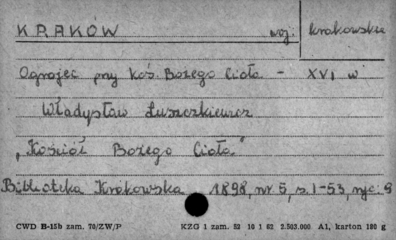 KRAKÓW woj. krakowskie
Ogrojec przy koś. Bożego Ciała - XVI w
Władysław Łuszczkiewicz
"Kościół Bożego Ciała"
Biblioteka Krakowska 1898, nr 5, s. 1-53, ryc. 9
CWD B-15b zam. 70/ZW/P KZG 1 zam. 52 10 1 62 2.503.000 A1, karton 180 g